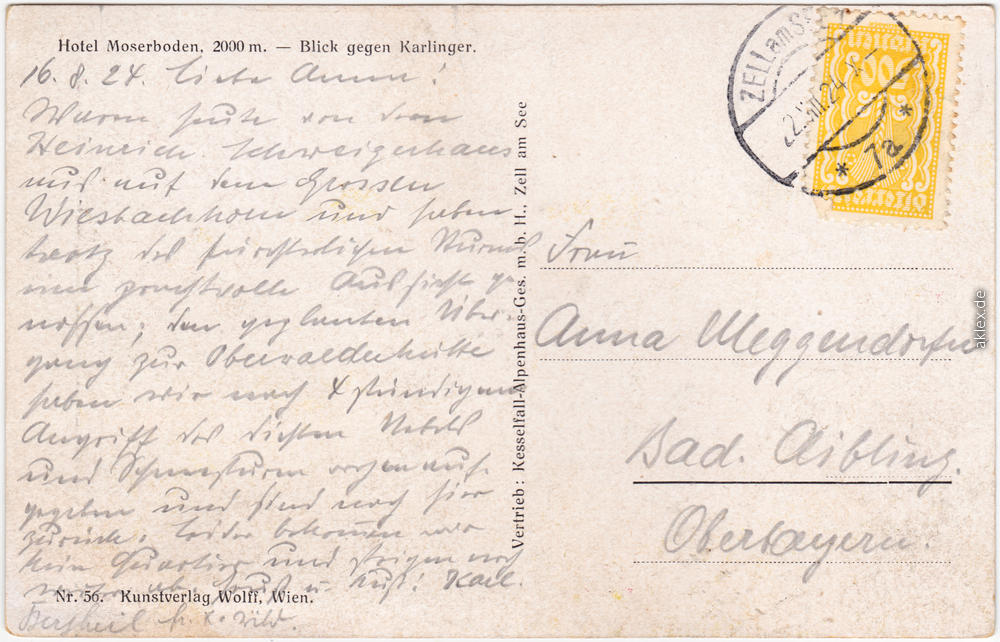 Hotel Moserboden, 2000 m. — Blick gegen Karlinger.
16.8.24. Liebe Anna!
Waren heute von dem
Heinrich Schwaigerhaus
aus auf dem Grossen
Wiesbachhorn und haben
trotz des fürchterlichen Sturmes
eine prachtvolle Aussicht ge-
nossen; den geplanten Über-
gang zur Oberwalderhütte
haben wir nach 4 stündigem
Angriff des dichten Nebels
und Schneesturm wegen auf-
gegeben und sind nach hier
zurück. Leider bekommen wir
kein Quartier und steigen noch
Gruß u. Kuß! Karl.
Nr. 56. Kunstverlag Wolff, Wien.
Bergheil
Vertrieb: Kesselfall-Alpenhaus-Ges. m. b. H., Zell am See
ZELL am SEE
22.VIII.24
* 7a *
Frau
Anna Meggendorfer
Bad. Aibling.
Oberbayern.
aklex.de